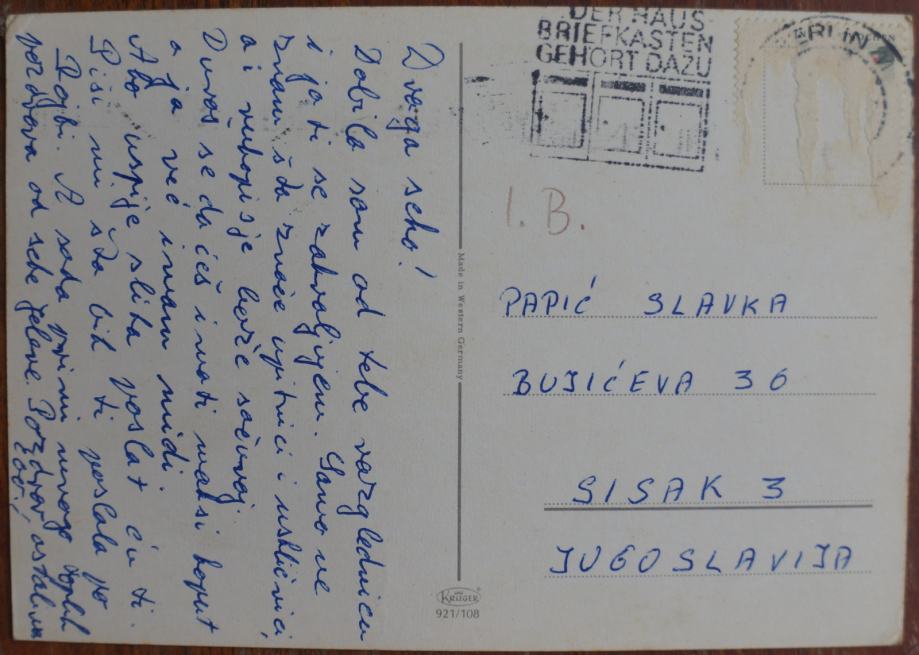 Draga seko!
Dobila sam od tebe razglednicu
i ja ti se zahvaljujem. Samo ne
znam šta znače upitnici i uskličnici,
a i rukopis je
Duvaš se da ćeš imati maksi kaput
a ja već imam midi.
Ako uspije slika poslat ću ti.
Piši mi šta bih ti poslala po
A sada primi mnogo toplih
pozdrava od seke Jelene. Pozdrav ostalima
DER HAUS-
BRIEFKASTEN
GEHÖRT DAZU
BERLIN
I.B.
PAPIĆ SLAVKA
BUJIĆEVA 36
SISAK 3
JUGOSLAVIJA
Made in Western Germany
KRÜGER
921/108